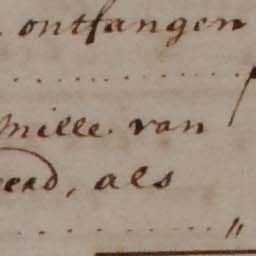 . ontfangen
mille. van
eerd, als
"